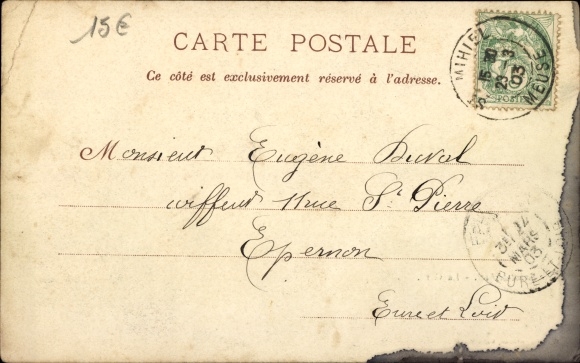 15€
CARTE POSTALE
Ce côté est exclusivement réservé à l'adresse.
ST MIHIEL
15 10
23 3
03
MEUSE
POSTES
Monsieur Eugène Duval
coiffeur 11 rue St Pierre
Epernon
Eure et Loir
MARS
03
EURE ET